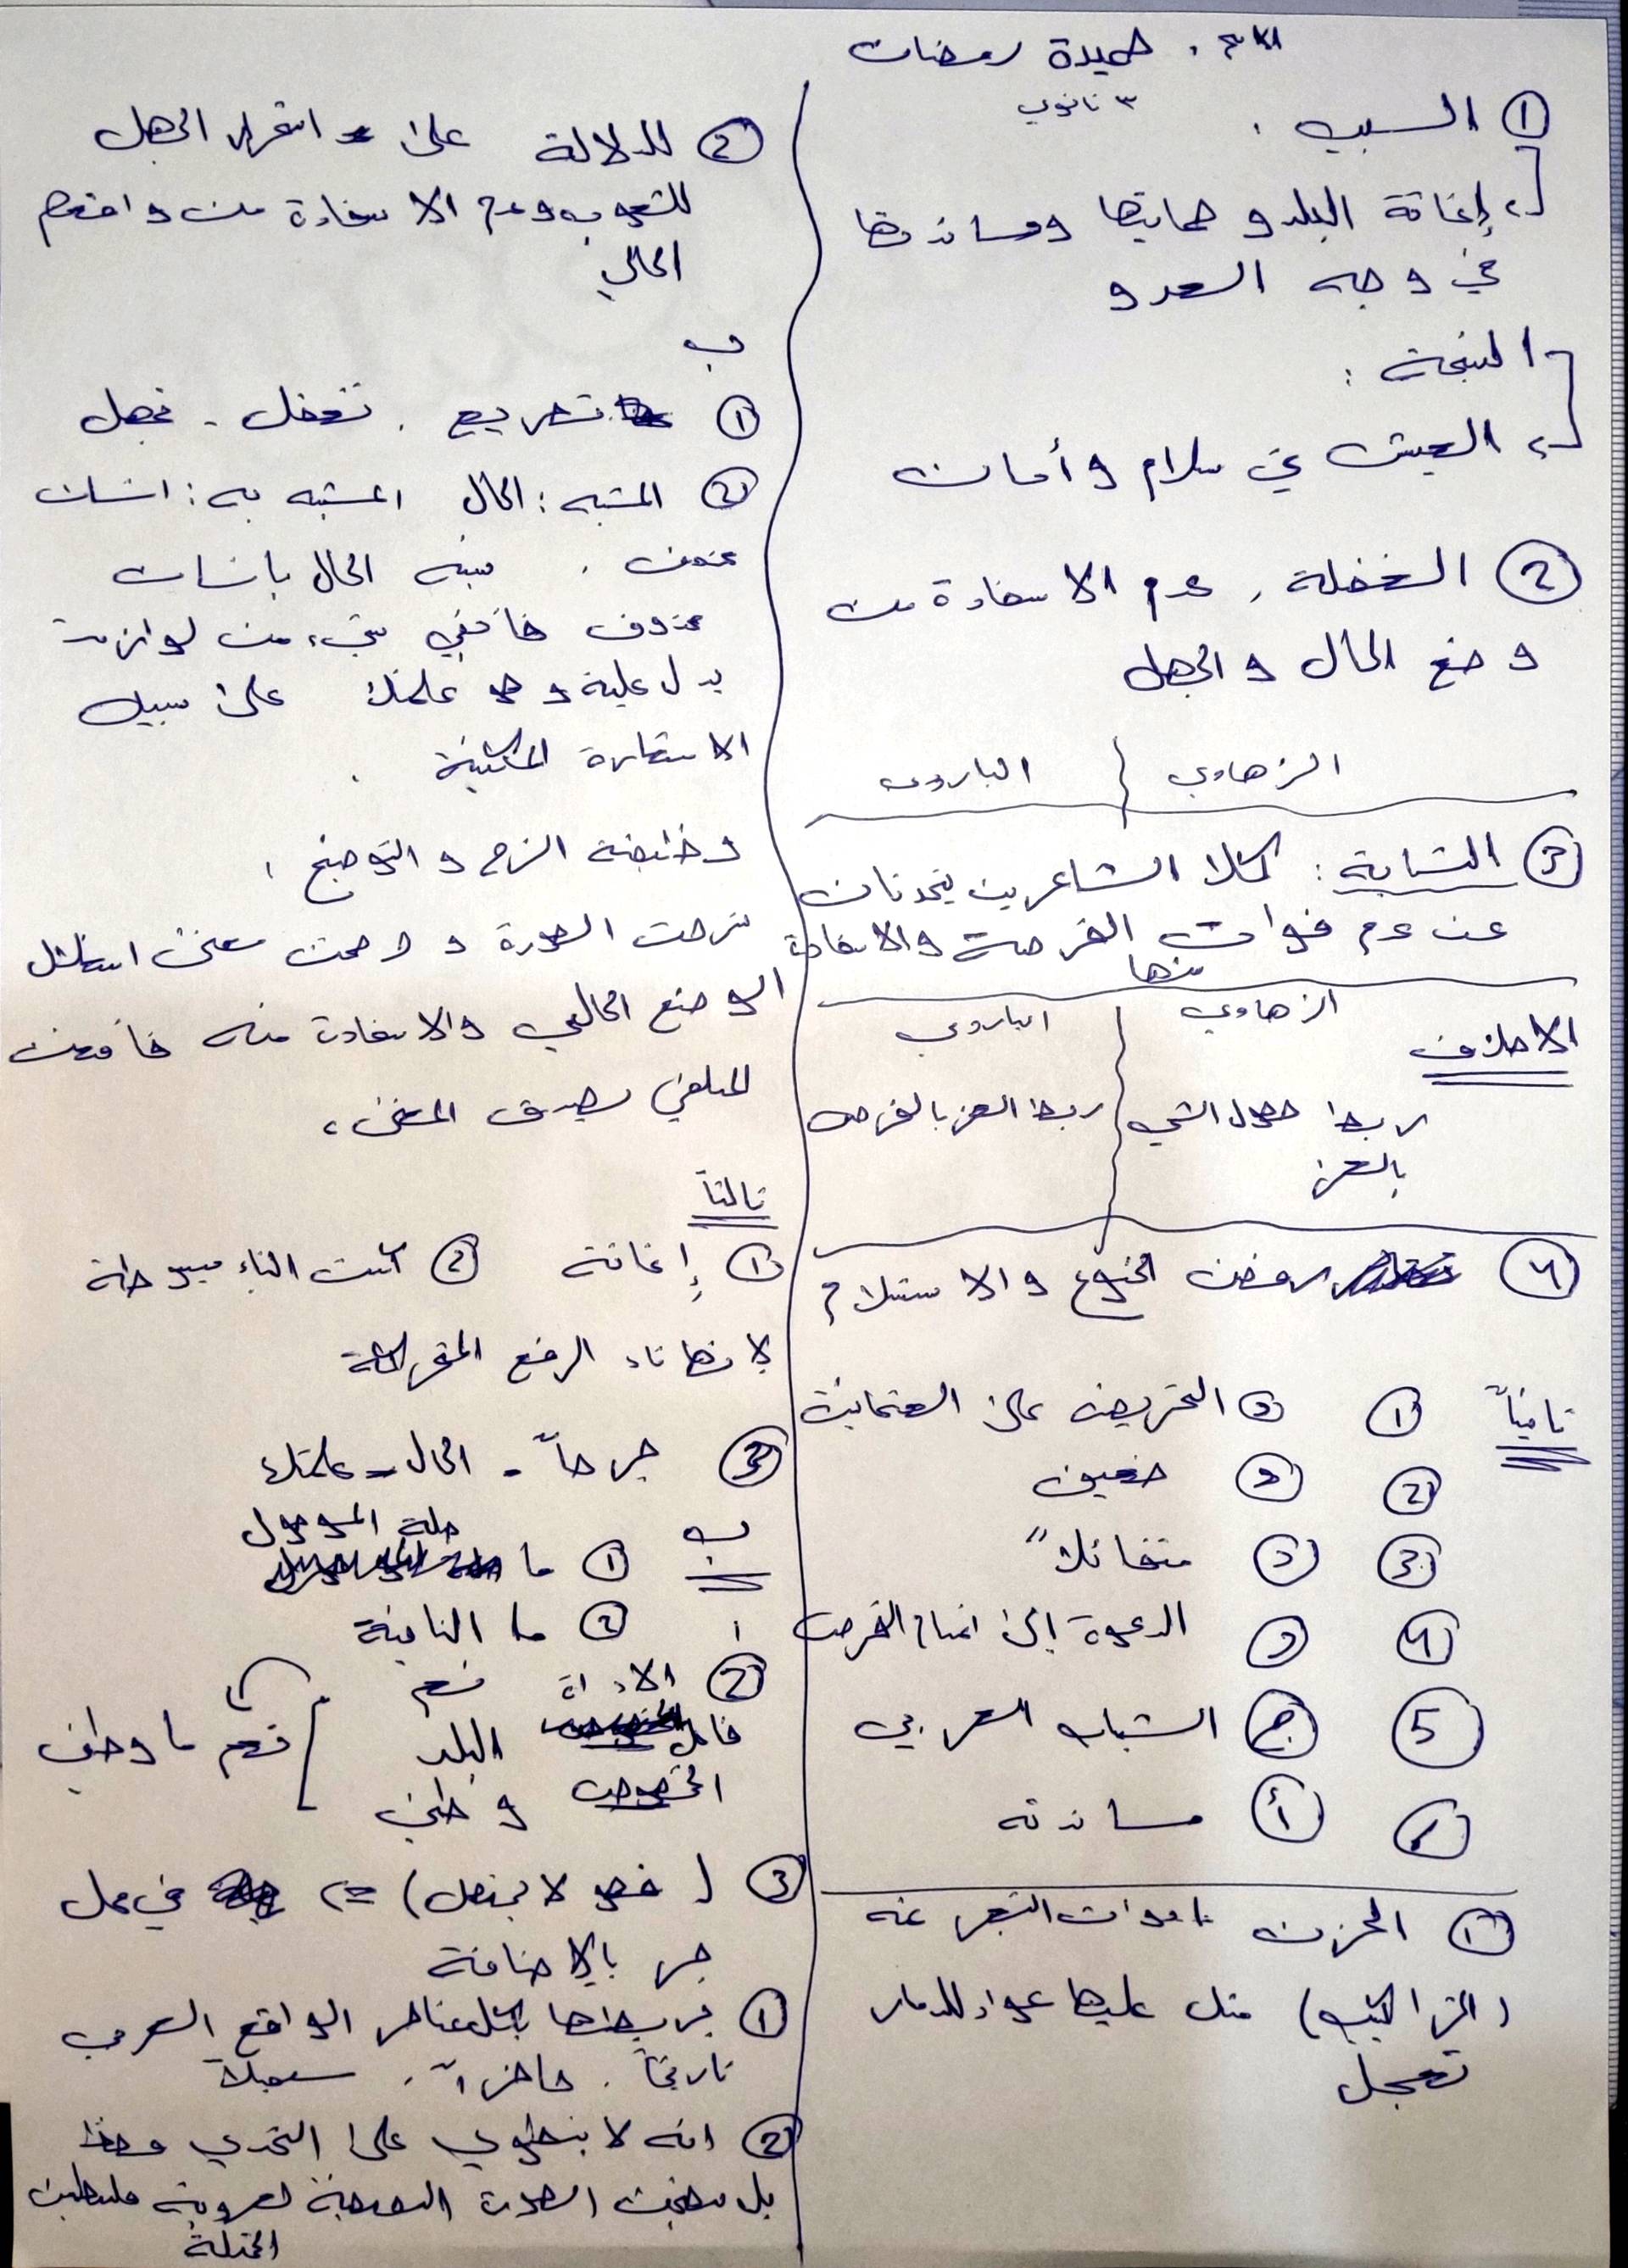 الاسم . حميدة رمضان
٣ ثانوي
① السبب .
إغاثة البلد و حمايتها ومساندتها
في وجه العدو
النتيجة :
العيش في سلام وأمان
② الغفلة , عدم الاستفادة من
وضع الحال والجهل
الزهاوي | البارودي
③ التشابة : كلا الشاعرين يتحدثان
عن عدم فوات الفرصة والاستفادة
منها
الزهاوي | البارودي
الاختلاف
ربط حصول الشيء | ربط العز بالفرصة
بالعز
٤ رفض الخنوع والاستسلام
ثانياً ① د التحريض على العثمانية
② د ضعيف
③ د متفائلاً
٤ د الدعوة إلى اغتنام الفرصة
5 ج الشباب العربي
أ مساندته
① الحزن أدوات التعبير عنه
(التراكيب) مثل عليها عواد للدمار
تعجل
② للدلالة على استمرار الجهل
للشعوب وعدم الاستفادة من واقعهم
الحالي
ب
① تصريع . تغفل - تجهل
② المشبه : الحال المشبه به : انسان
محذوف . شبه الحال بانسان
محذوف فأبقي شيء من لوازمه
يدل علية وهو علمتك على سبيل
الاستعارة المكنية .
وظيفة الشرح و التوضيح :
شرحت الصورة و وضحت معنى استغلال
الوضع الحالي والاستفادة منه فأقنعت
المتلقي بصدق المعنى ،
ثالثاً
① إغاثة ② كتبت التاء مبسوطة
لانها تاء الرفع المتحركة
③ جرحاً - الحال - علمتك
ب ① ما صلة الموصول
② ما النافية
② الاداة نعم
فاعل البلد ] نعم ما وطني
المخصوص وطني
③ ( فهو لا يجهل ) => في محل
جر بالإضافة
① يربطها بكل عناصر الواقع العربي
تاريخاً . حاضراً . مستقبلاً
② انه لا ينطوي على التحدي وحده
بل الصورة لعروبة فلسطين
المحتلة